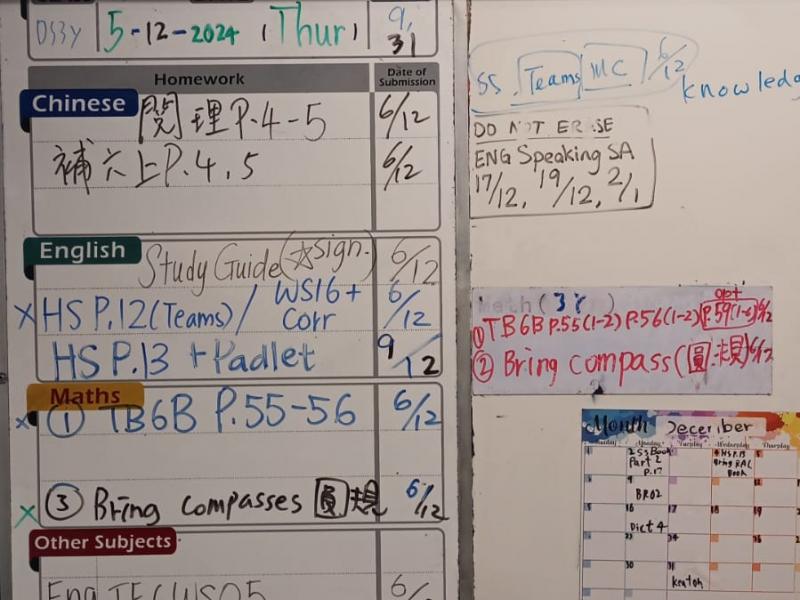 DS3Y 5-12-2024 (Thur) 9,
31
Homework Date of Submission
Chinese
閱理P.4-5 6/12
補六上P.4,5 6/12
English
Study Guide(☆sign.) 6/12
HS P.12(Teams)/ WS16+ Corr 6/12
HS P.13 +Padlet 9/12
Maths
① TB6B P.55-56 6/12
③ Bring compasses 圓規 6/12
Other Subjects
6/
SS. Teams MC 6/12
DO NOT ERASE
ENG Speaking SA
17/12, 19/12, 2/1
Math (3Y)
opt
① TB6B P.55(1-2) P.56(1-2) P.59(1-6) 6/12
② Bring compass(圓規) 6/12
Month December
Monday Tuesday Wednesday Thursday
2 SS Book
Part 2
P.17
4 HS P.13
Bring RAC
Book
5
9
BR02
12
16 17 18 19
Dict 4
24 26
30 31